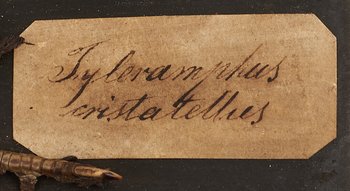 Tyloramphus
cristatellus